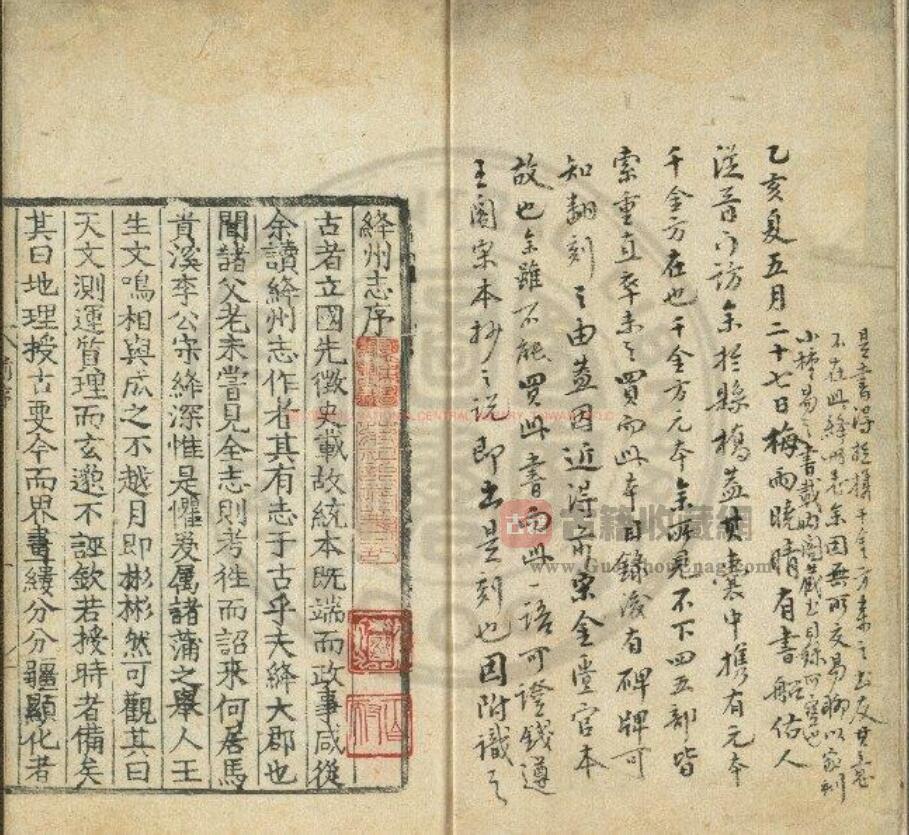 是書得於攜千金方來之書友其意
不在此絳州志余因無所交易聊以家刻
小種易之書載內閣藏書目錄可寶也
乙亥夏五月二十七日梅雨曉晴有書船估人
從昔門訪余於縣橋蓋其囊中攜有元本
千金方在也千金方元本余所見不下四五部皆
索重直卒未之買而此本目錄後有碑牌可
知翻刻之由蓋因近得前宋金堂官本
故也余雖不能買此書而此一語可證錢遵
王閣宋本抄之說即出是刻也因附識之
絳州志序
古者立國先徵史載故統本既端而政事咸從
余讀絳州志作者其有志于古乎夫絳大郡也
聞諸父老未嘗見全志則考徃而詔來何居馬
貴溪李公守絳深惟是懼爰属諸蒲之舉人王
生文鳴相與成之不越月即彬彬然可觀其曰
天文測運質理而玄邈不誣欽若授時者備矣
其曰地理授古要今而界畫縷分分疆顯化者
古籍收藏網
NATIONAL CENTRAL LIBRARY, TAIWAN R.O.C